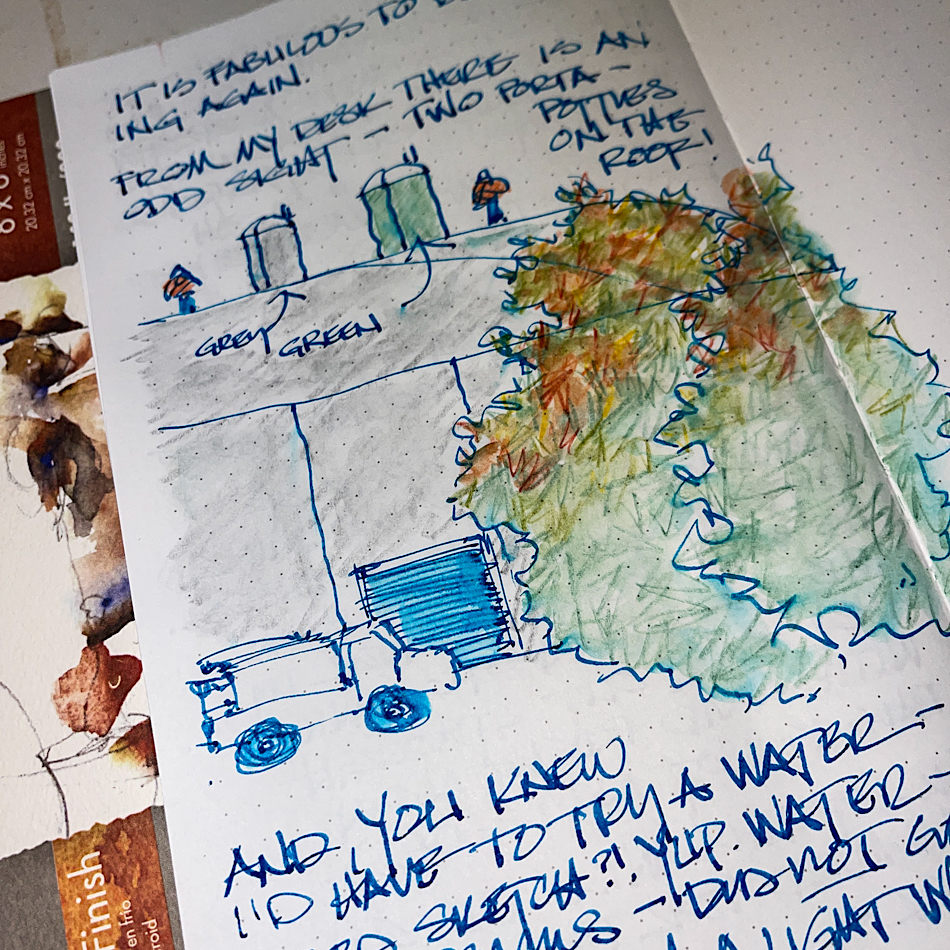 IT IS FABULOUS TO
ING AGAIN.
FROM MY DESK THERE IS AN
ODD SIGHT - TWO PORTA-
POTTIES
ON THE
ROOF!
GREY
GREEN
AND YOU KNEW
I'D HAVE TO TRY A WATER-
SKETCH?! YUP. WATER-
- DID NOT
A LIGHT
8 x 8 inches
20.32 cm x 20.32 cm
Finish
en frio
roid